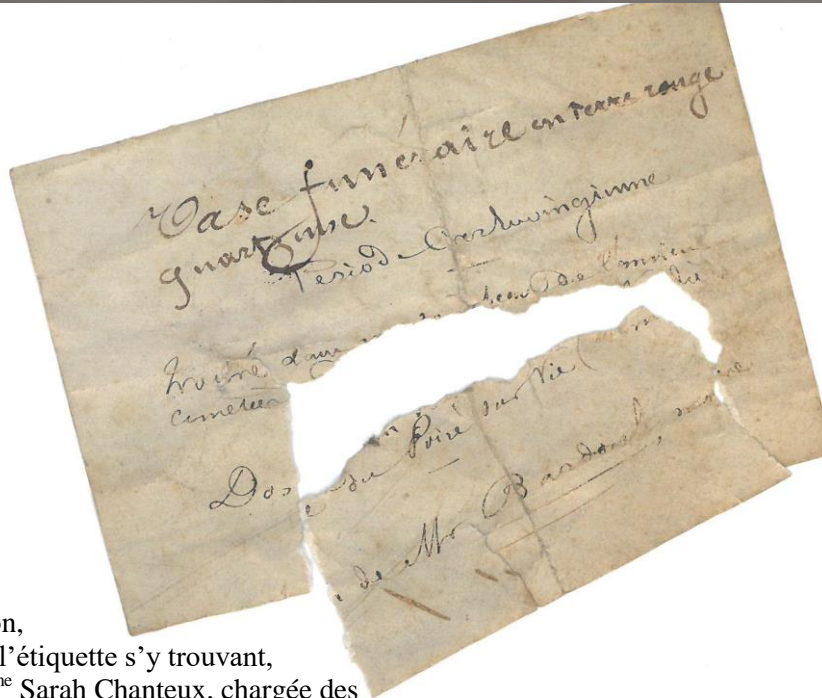 Vase funéraire en terre rouge
quartzeuse.
Période Carlovingienne
trouvé dans de l'ancien
cimetière
du Poiré sur Vie
Don de Mr Bardoul, maire
on,
l'étiquette s'y trouvant,
me Sarah Chanteux, chargée des